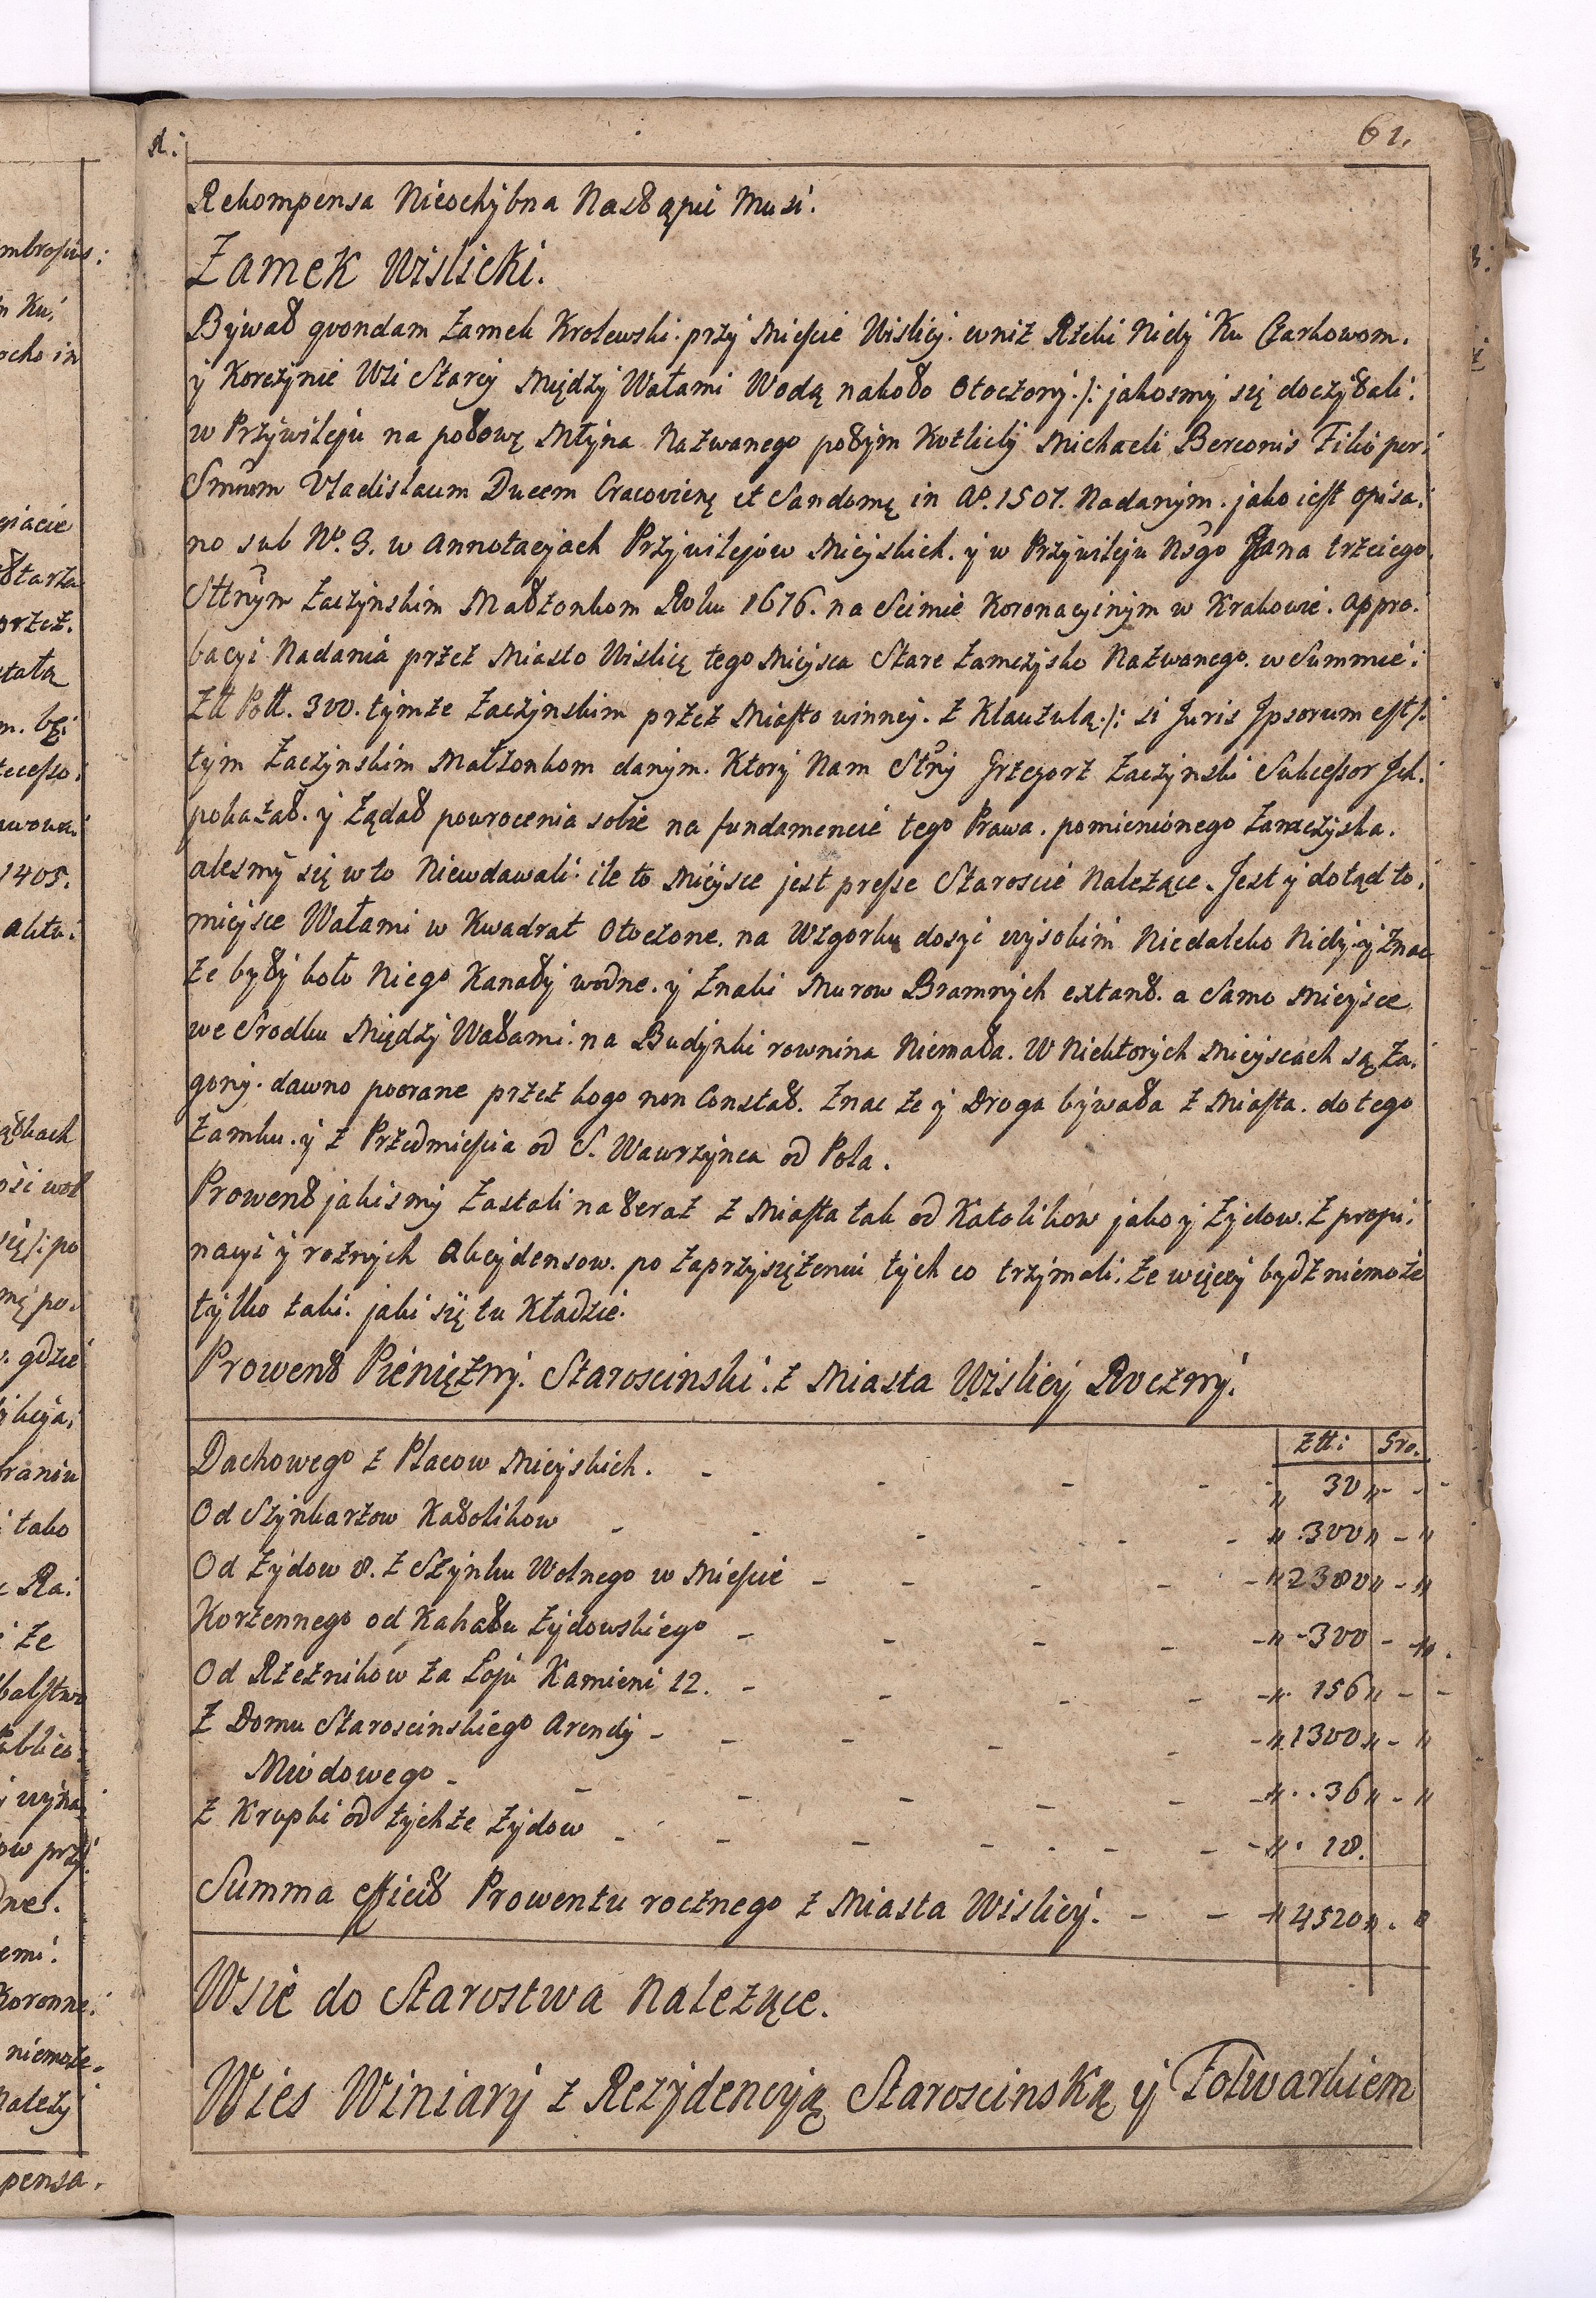 61.
Rekompensa Nieochybna Nastąpić Musi.
Zamek Wislicki.
Bywał qvondam Zamek Krolewski. przy Mieście Wislicy. wniż Rzeki Nidy Ku Czarkowom.
y Korczynie Wsi Starey Między Wałami Wodą nakoło Otoczony. /: jakosmy się doczytali.
w Przywileju na połowę Młyna Nazwanego połym Kozlicly Michaeli Berconis Filio per
Smum Vladislaum Ducem Cracovienę et Sandomę in Ao. 1507. Nadanym. jako iest opisa:
no sub No. 3. w Annotacyach Przywilejow Mieyskich. y w Przywileju Nsgo Jana trzeciego.
Sttnym Zaczynskim Małżonkom Roku 1676. na Seimie Koronacyinym w Krakowie. appro:
bacyi Nadania przez Miasto Wislicę tego Mieysca Stare Zamczysko Nazwanego. w Summie:
Ztt Poll. 300. tymże Zaczynskim przez Miasto winney. z Klauzulą. /: si Juris Ipsorum est /:
tym Zaczynskim Małżonkom danym. Ktory Nam Stny Grzegorz Zaczynski Sukcessor Ich.
pokazał. y Żądał powrocenia sobie na fundamencie tego Prawa. pomienionego Zamczyska.
alesmy się w to Niewdawali. ile to Mieysce jest presse Staroscie Należące. Jest y dotąd to.
mieysce Wałami w Kwadrat Otoczone. na Wzgorku dosyć wysokim Niedaleko Nidy. y Znac
że były koło Niego Kanały wodne. y Znaki Murow Bramnych extant. a Samo Mieysce
we Srodku Między Wałami. na Budynki rownina Niemała. W Niektorych Mieyscach są Za:
gony. dawno poorane przez kogo non Constat. Znac że y Droga bywała z Miasta. do tego
Zamku. y z Przedmieścia od S. Wawrzynca od Pola.
Prowent jakismy Zastali na teraz z Miasta tak od Katolikow jako y Zydow. z propi:
nacyi y rożnych Akcydensow. po zaprzysiężeniu tych co trzymali. że więcey bydź niemoże
tylko taki. jaki się tu Kładzie.
Prowent Pieniężny. Staroscinski. z Miasta Wislicy Roczny.
Ztt: Gro.
Dachowego z Placow Mieyskich. - - - - „ 30 „ - -
Od Szynkarzow Katolikow - - - - - „ 300 „ - „
Od Zydow 8. z Szynku Wolnego w Mieście - - - - - „ 2380 „ - „
Korzennego od Kahału Zydowskiego - - - - - „ 300 - „
Od Rzeznikow za Łoju Kamieni 12. - - - - - „ 156 „ - -
Z Domu Staroscinskiego Arendy - - - - - - „ 1300 „ - „
Miodowego - - - - - - - „ 36 „ - „
Z Krupki od tychże Zydow - - - - - - - „ 18.
Summa efficit Prowentu rocznego z Miasta Wislicy. - - - „ 4520 „ . „
Wsie do Starostwa Należące.
Wies Winiary z Rezydencyją Staroscinską y Folwarkiem